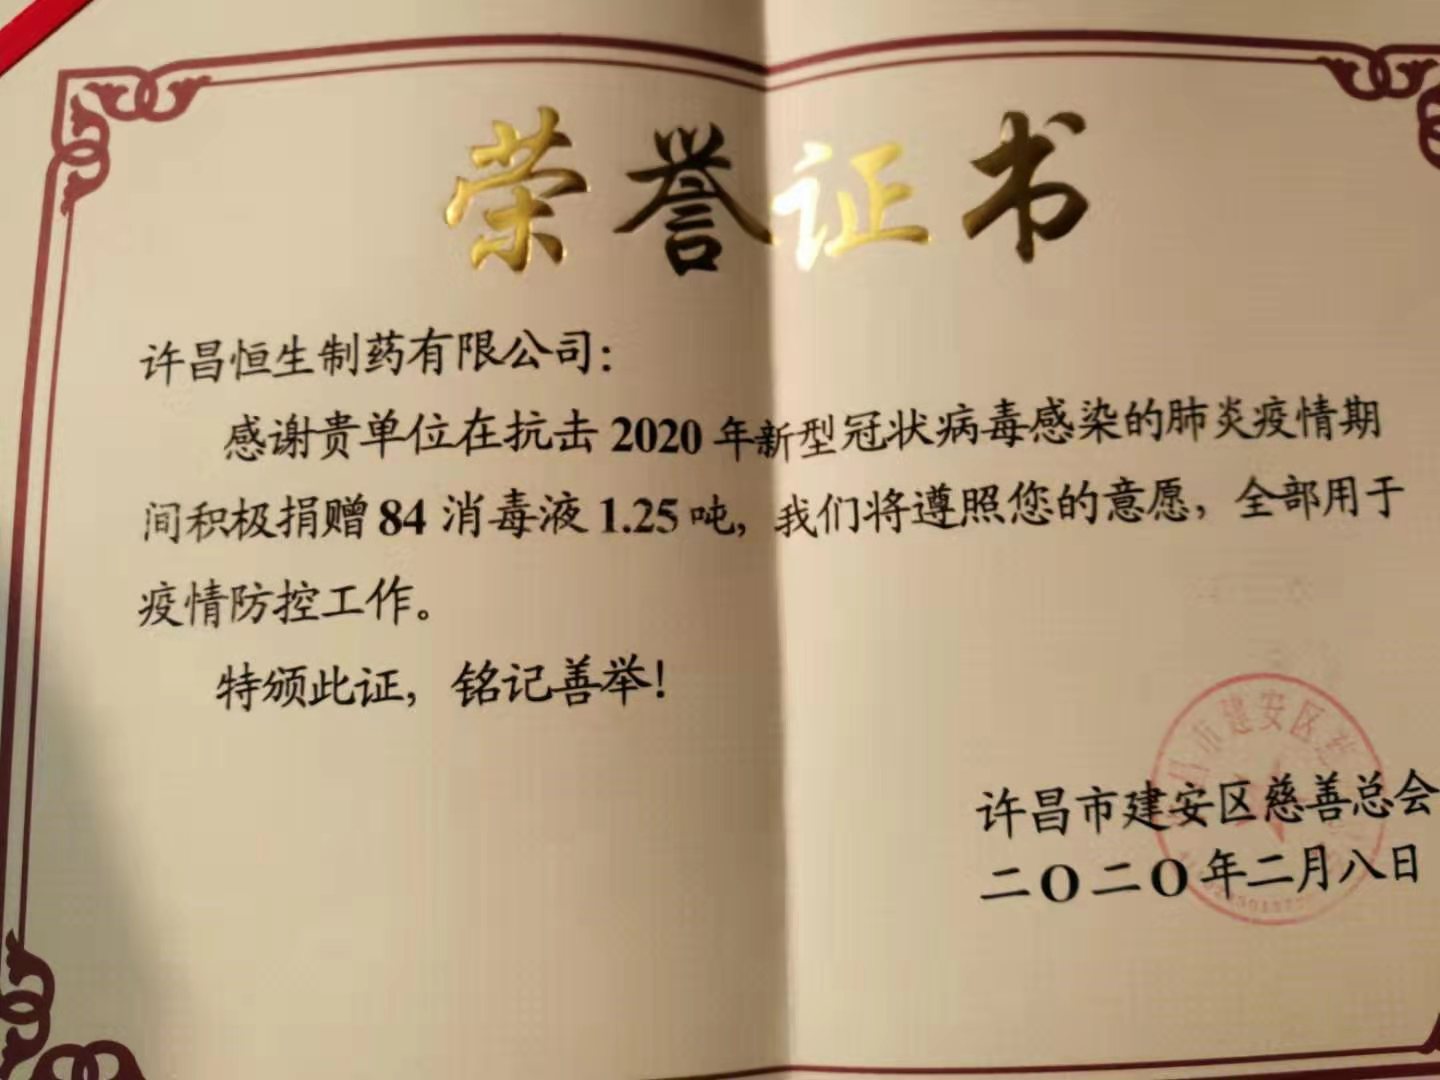 荣誉证书
许昌恒生制药有限公司：
感谢贵单位在抗击2020年新型冠状病毒感染的肺炎疫情期
间积极捐赠84消毒液1.25吨，我们将遵照您的意愿，全部用于
疫情防控工作。
特颁此证，铭记善举！
昌市建安区慈
许昌市建安区慈善总会
二〇二〇年二月八日